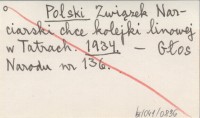 Polski Związek Nar-
ciarski chce kolejki linowej
w Tatrach. 1934. — Głos
Narodu nr 136.